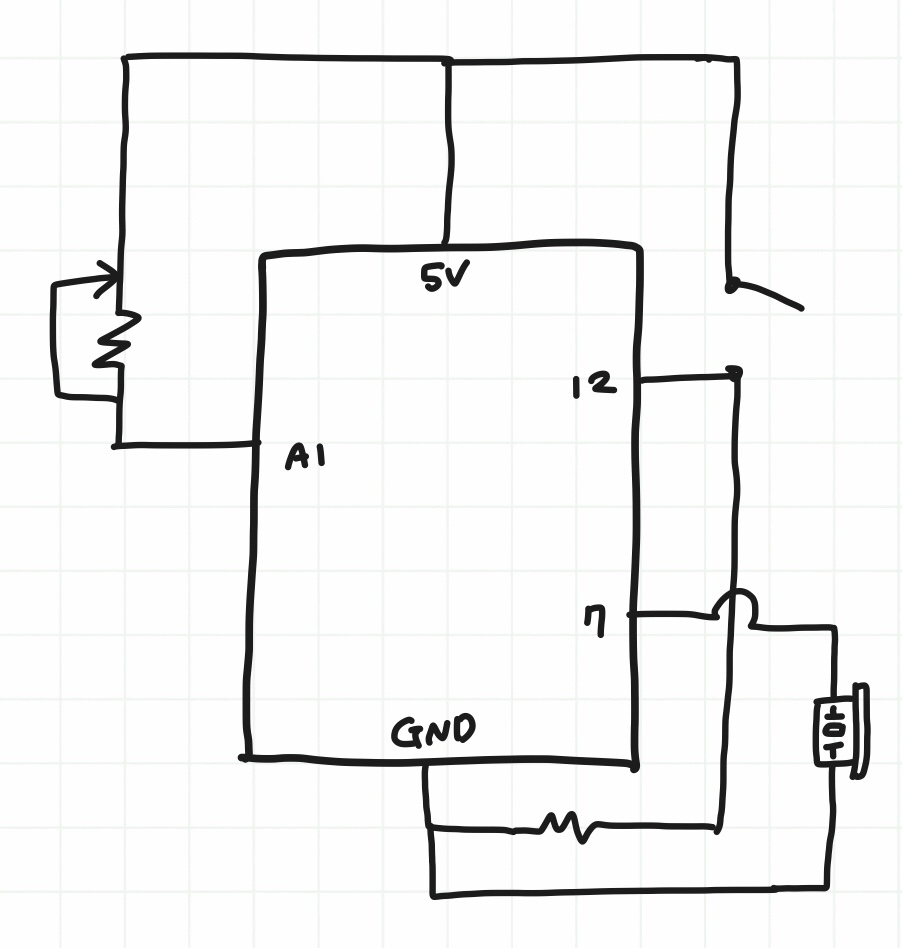 5V
12
A1
7
GND